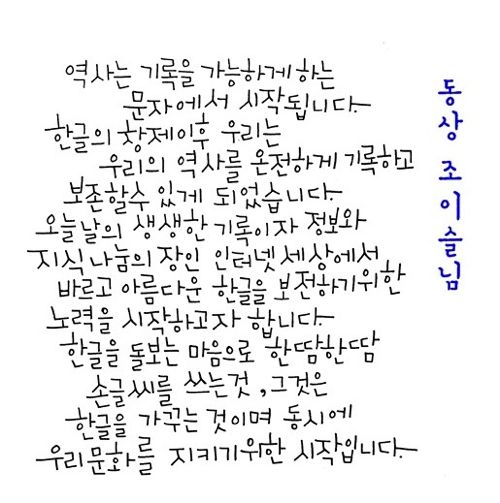 역사는 기록을 가능하게하는
문자에서 시작됩니다.
한글의 창제이후 우리는
우리의 역사를 온전하게 기록하고
보존할수 있게 되었습니다.
오늘날의 생생한 기록이자 정보와
지식 나눔의 장인 인터넷세상에서
바르고 아름다운 한글을 보전하기위한
노력을 시작하고자 합니다.
한글을 돌보는 마음으로 한땀한땀
손글씨를 쓰는것, 그것은
한글을 가꾸는 것이며 동시에
우리문화를 지키기위한 시작입니다.
동상 조이슬님